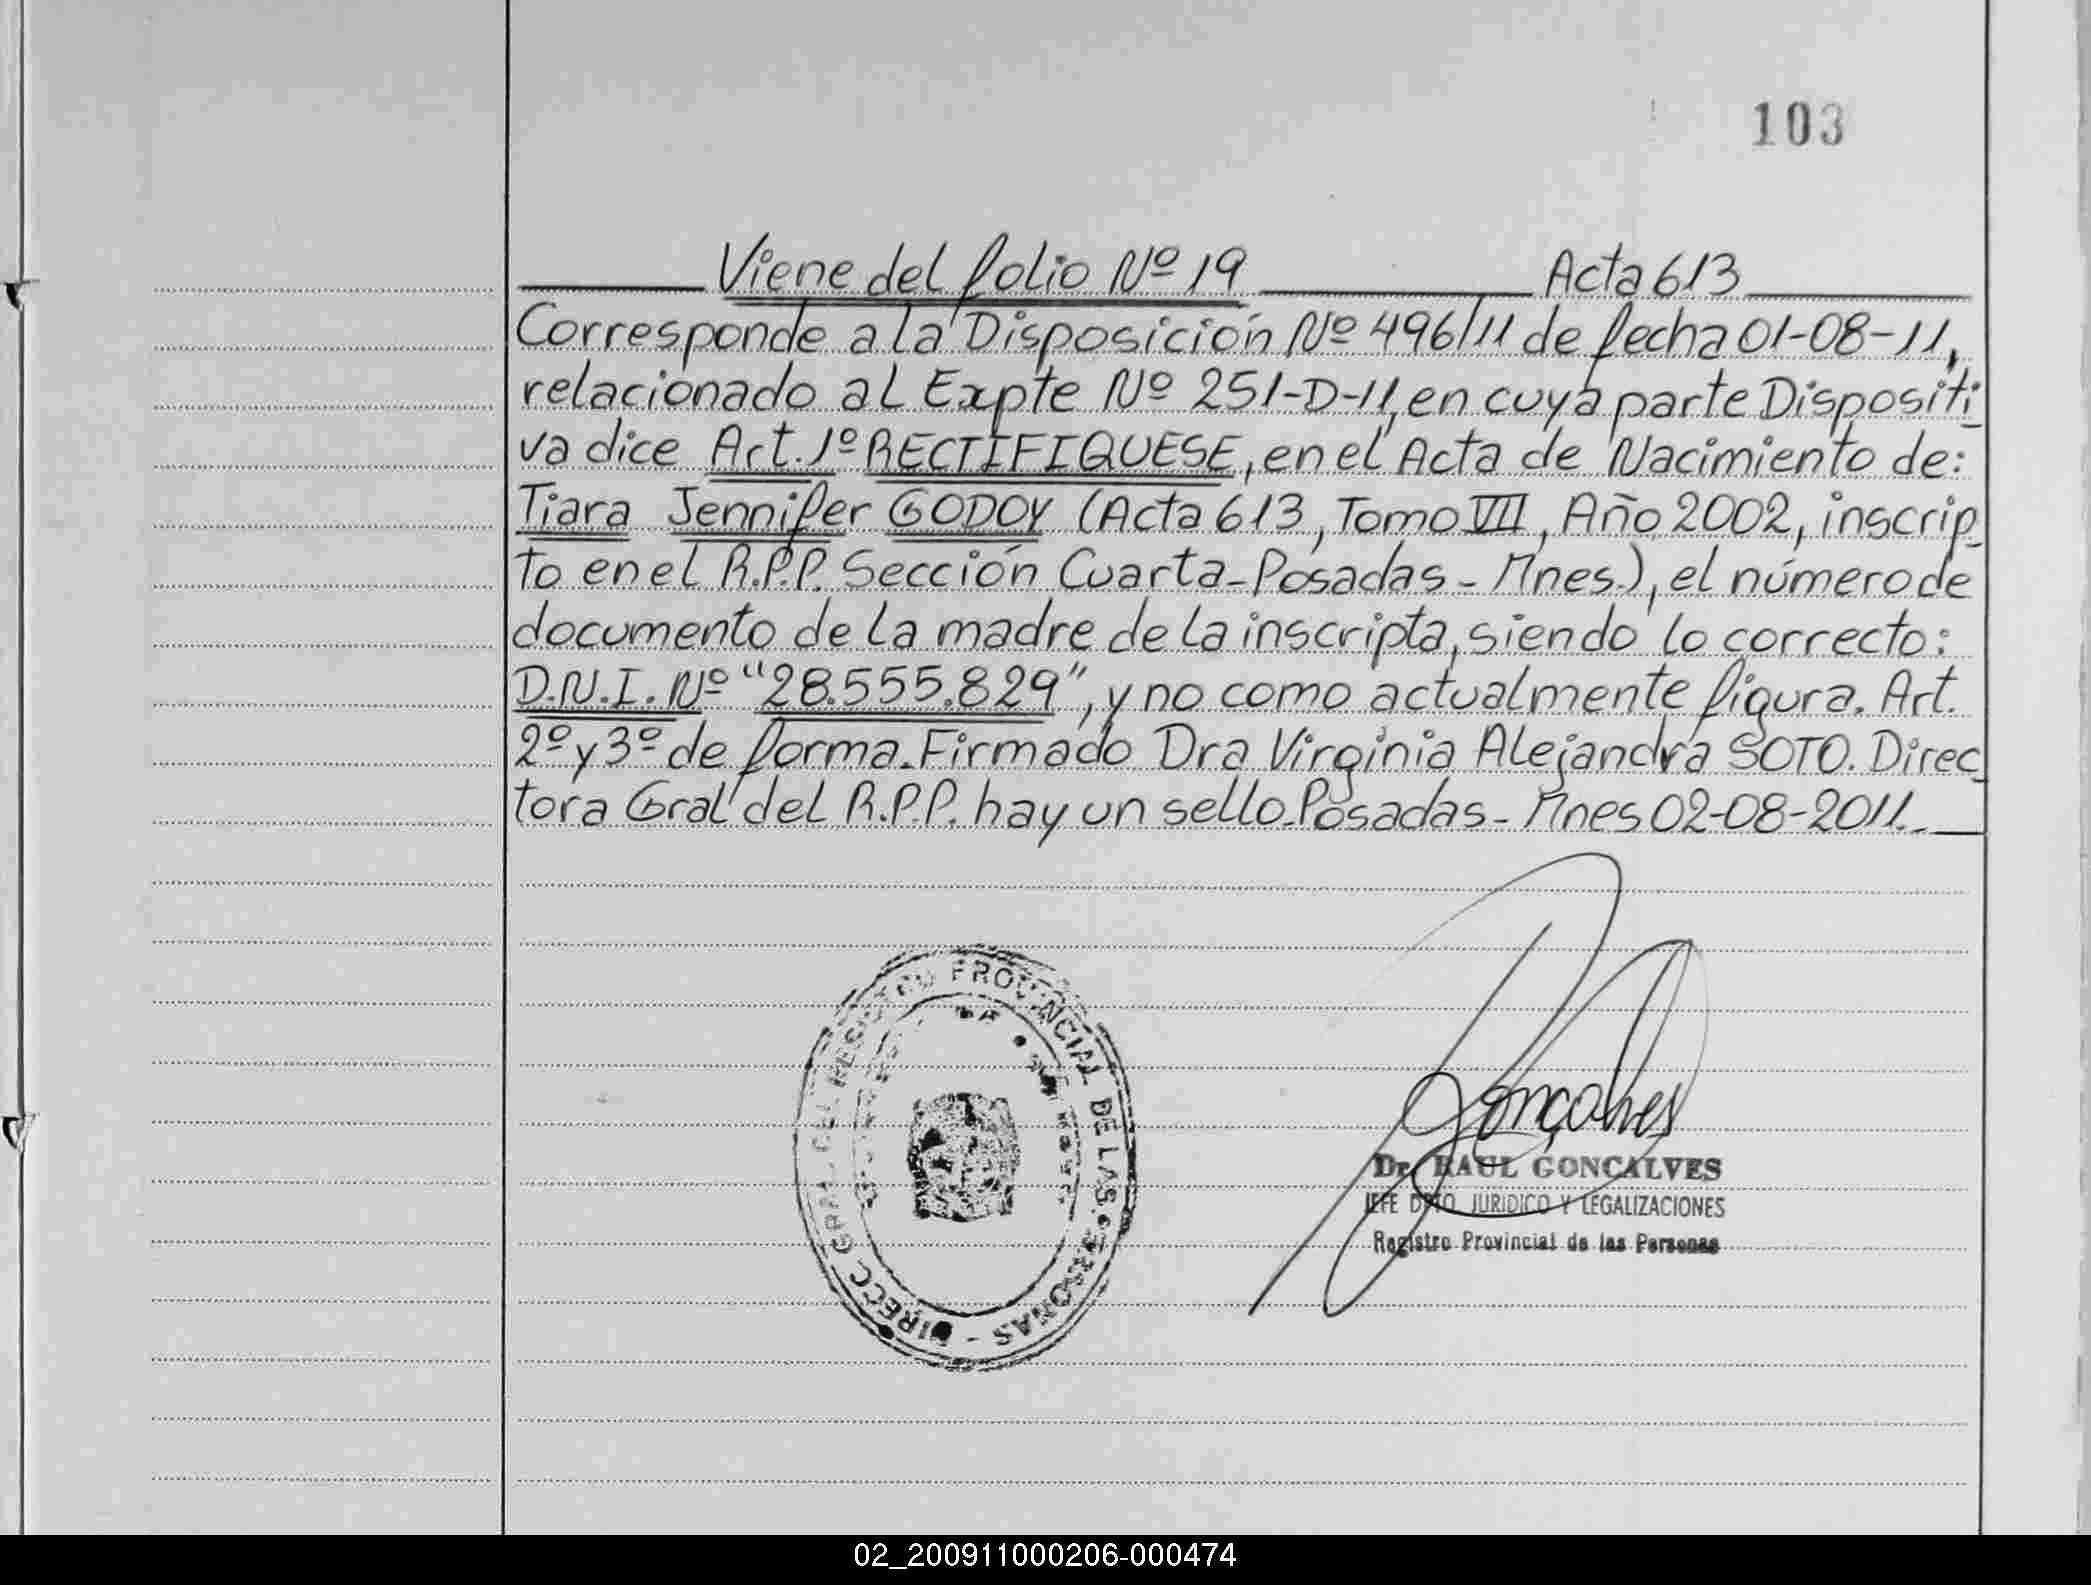 103
Viene del folio Nº 19 Acta 613
Corresponde a la Disposición Nº 496/11 de fecha 01-08-11,
relacionado al Expte Nº 251-D-11, en cuya parte Dispositi
va dice Art. 1º RECTIFIQUESE, en el Acta de Nacimiento de:
Tiara Jennifer GODOY (Acta 613, Tomo VII, Año 2002, inscrip
to en el R.P.P. Sección Cuarta-Posadas-Mnes.), el número de
documento de la madre de la inscripta, siendo lo correcto:
D.N.I. Nº "28.555.829", y no como actualmente figura. Art.
2º y 3º de forma. Firmado Dra Virginia Alejandra SOTO. Direc
tora Gral del R.P.P. hay un sello. Posadas - Mnes 02-08-2011.
DIRECC. GRAL. DEL REGISTRO PROVINCIAL DE LAS PERSONAS -
Goncalves
Dr. RAUL GONCALVES
JEFE DPTO JURIDICO Y LEGALIZACIONES
Registro Provincial de las Personas
02_200911000206-000474